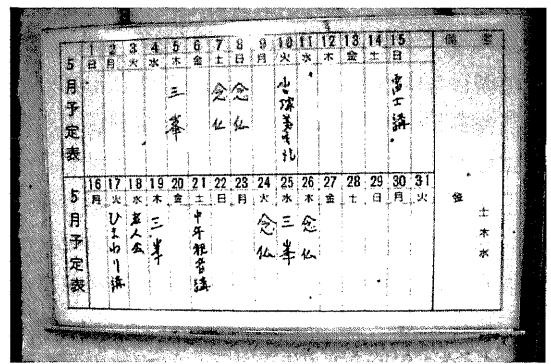 5月予定表
1 2 3 4 5 6 7 8 9 10 11 12 13 14 15 備考
日 月 火 水 木 金 土 日 月 火 水 木 金 土 日
三峯 念仏 念仏 富士講
5月予定表
16 17 18 19 20 21 22 23 24 25 26 27 28 29 30 31
月 火 水 木 金 土 日 月 火 水 木 金 土 日 月 火
ひまわり講 老人会 三峯 念仏 三峯 念仏
土木水